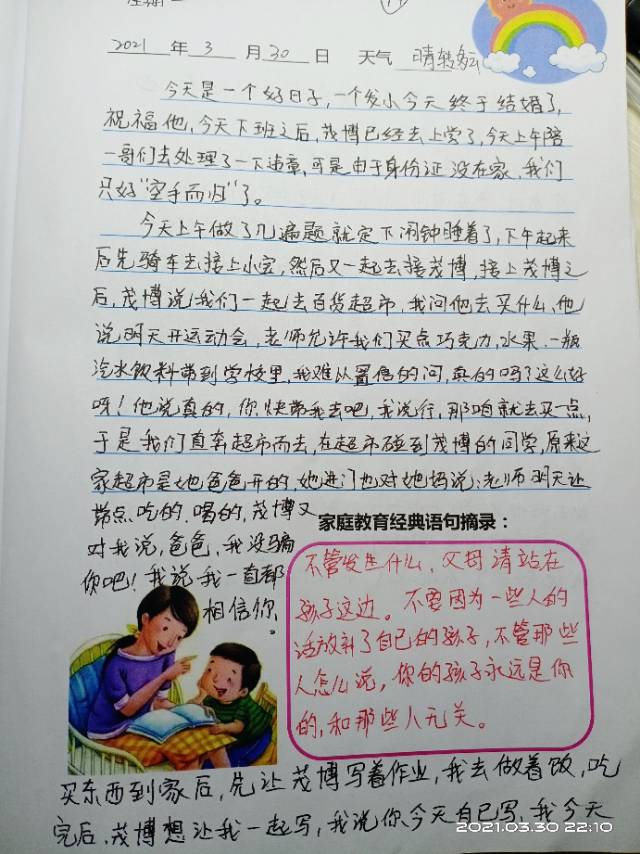 星期一
2021 年 3 月 30 日 天气 晴转多云
今天是一个好日子,一个发小今天终于结婚了,
祝福他,今天下班之后,茂博已经去上学了,今天上午陪
一哥们去处理了一下违章,可是由于身份证没在家,我们
只好“空手而归”了。
今天上午做了几遍题就定下闹钟睡着了,下午起来
后先骑车去接上小宝,然后又一起去接茂博,接上茂博之
后,茂博说我们一起去百货超市,我问他去买什么,他
说明天开运动会,老师允许我们买点巧克力,水果,一瓶
汽水饮料带到学校里,我难以置信的问,真的吗?这么好
呀!他说真的,你快带我去吧,我说行,那咱就去买一点,
于是我们直奔超市而去,在超市碰到茂博的同学,原来这
家超市是她爸爸开的,她进门也对她妈说:老师明天让
带点吃的,喝的,茂博又
对我说,爸爸,我没骗
你吧!我说我一直都
相信你。
家庭教育经典语句摘录:
不管发生什么,父母请站在
孩子这边。不要因为一些人的
话放弃了自己的孩子,不管那些
人怎么说,你的孩子永远是你
的,和那些人无关。
买东西到家后,先让茂博写着作业,我去做着饭,吃
完后,茂博想让我一起写,我说你今天自己写,我今天
2021.03.30 22:10